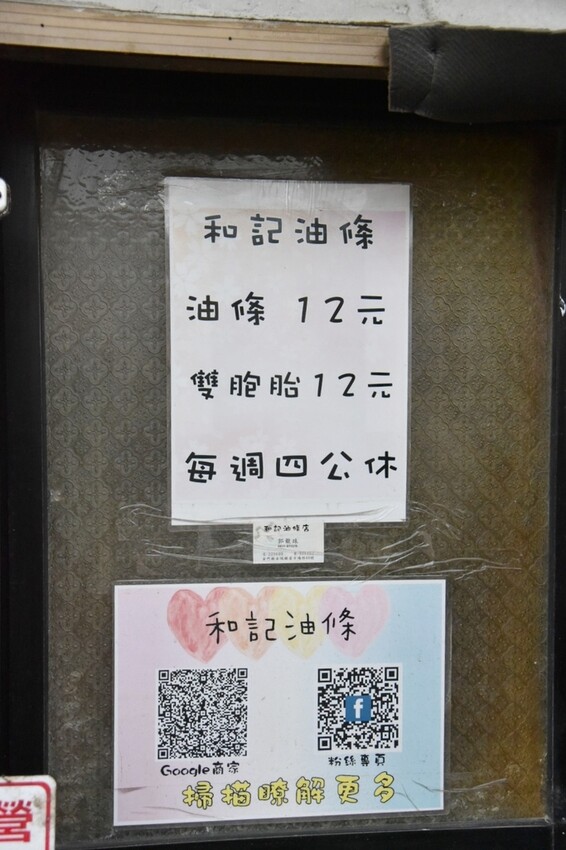 和記油條
油條 12元
雙胞胎12元
每週四公休
和記油條店
和記油條
Google商家
粉絲專頁
掃描瞭解更多
營